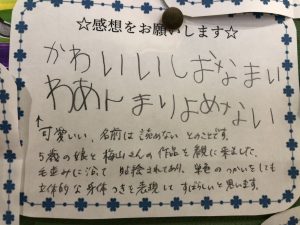 ☆感想をお願いします☆
かわいいしおなまい
わあんまりよめない
↑
可愛いい、名前は読めないとのことです。
5歳の娘と梅山さんの作品を観に来ました。
毛並みに沿って
されており、単色のつかいをしても
立体的な身体つきを表現してすばらしいと思います。